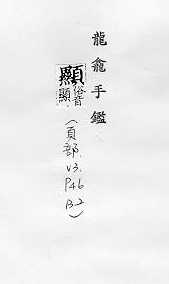 龍龕手鑑
顯
顯俗音
(頁部.
V3.
P46
B-2)